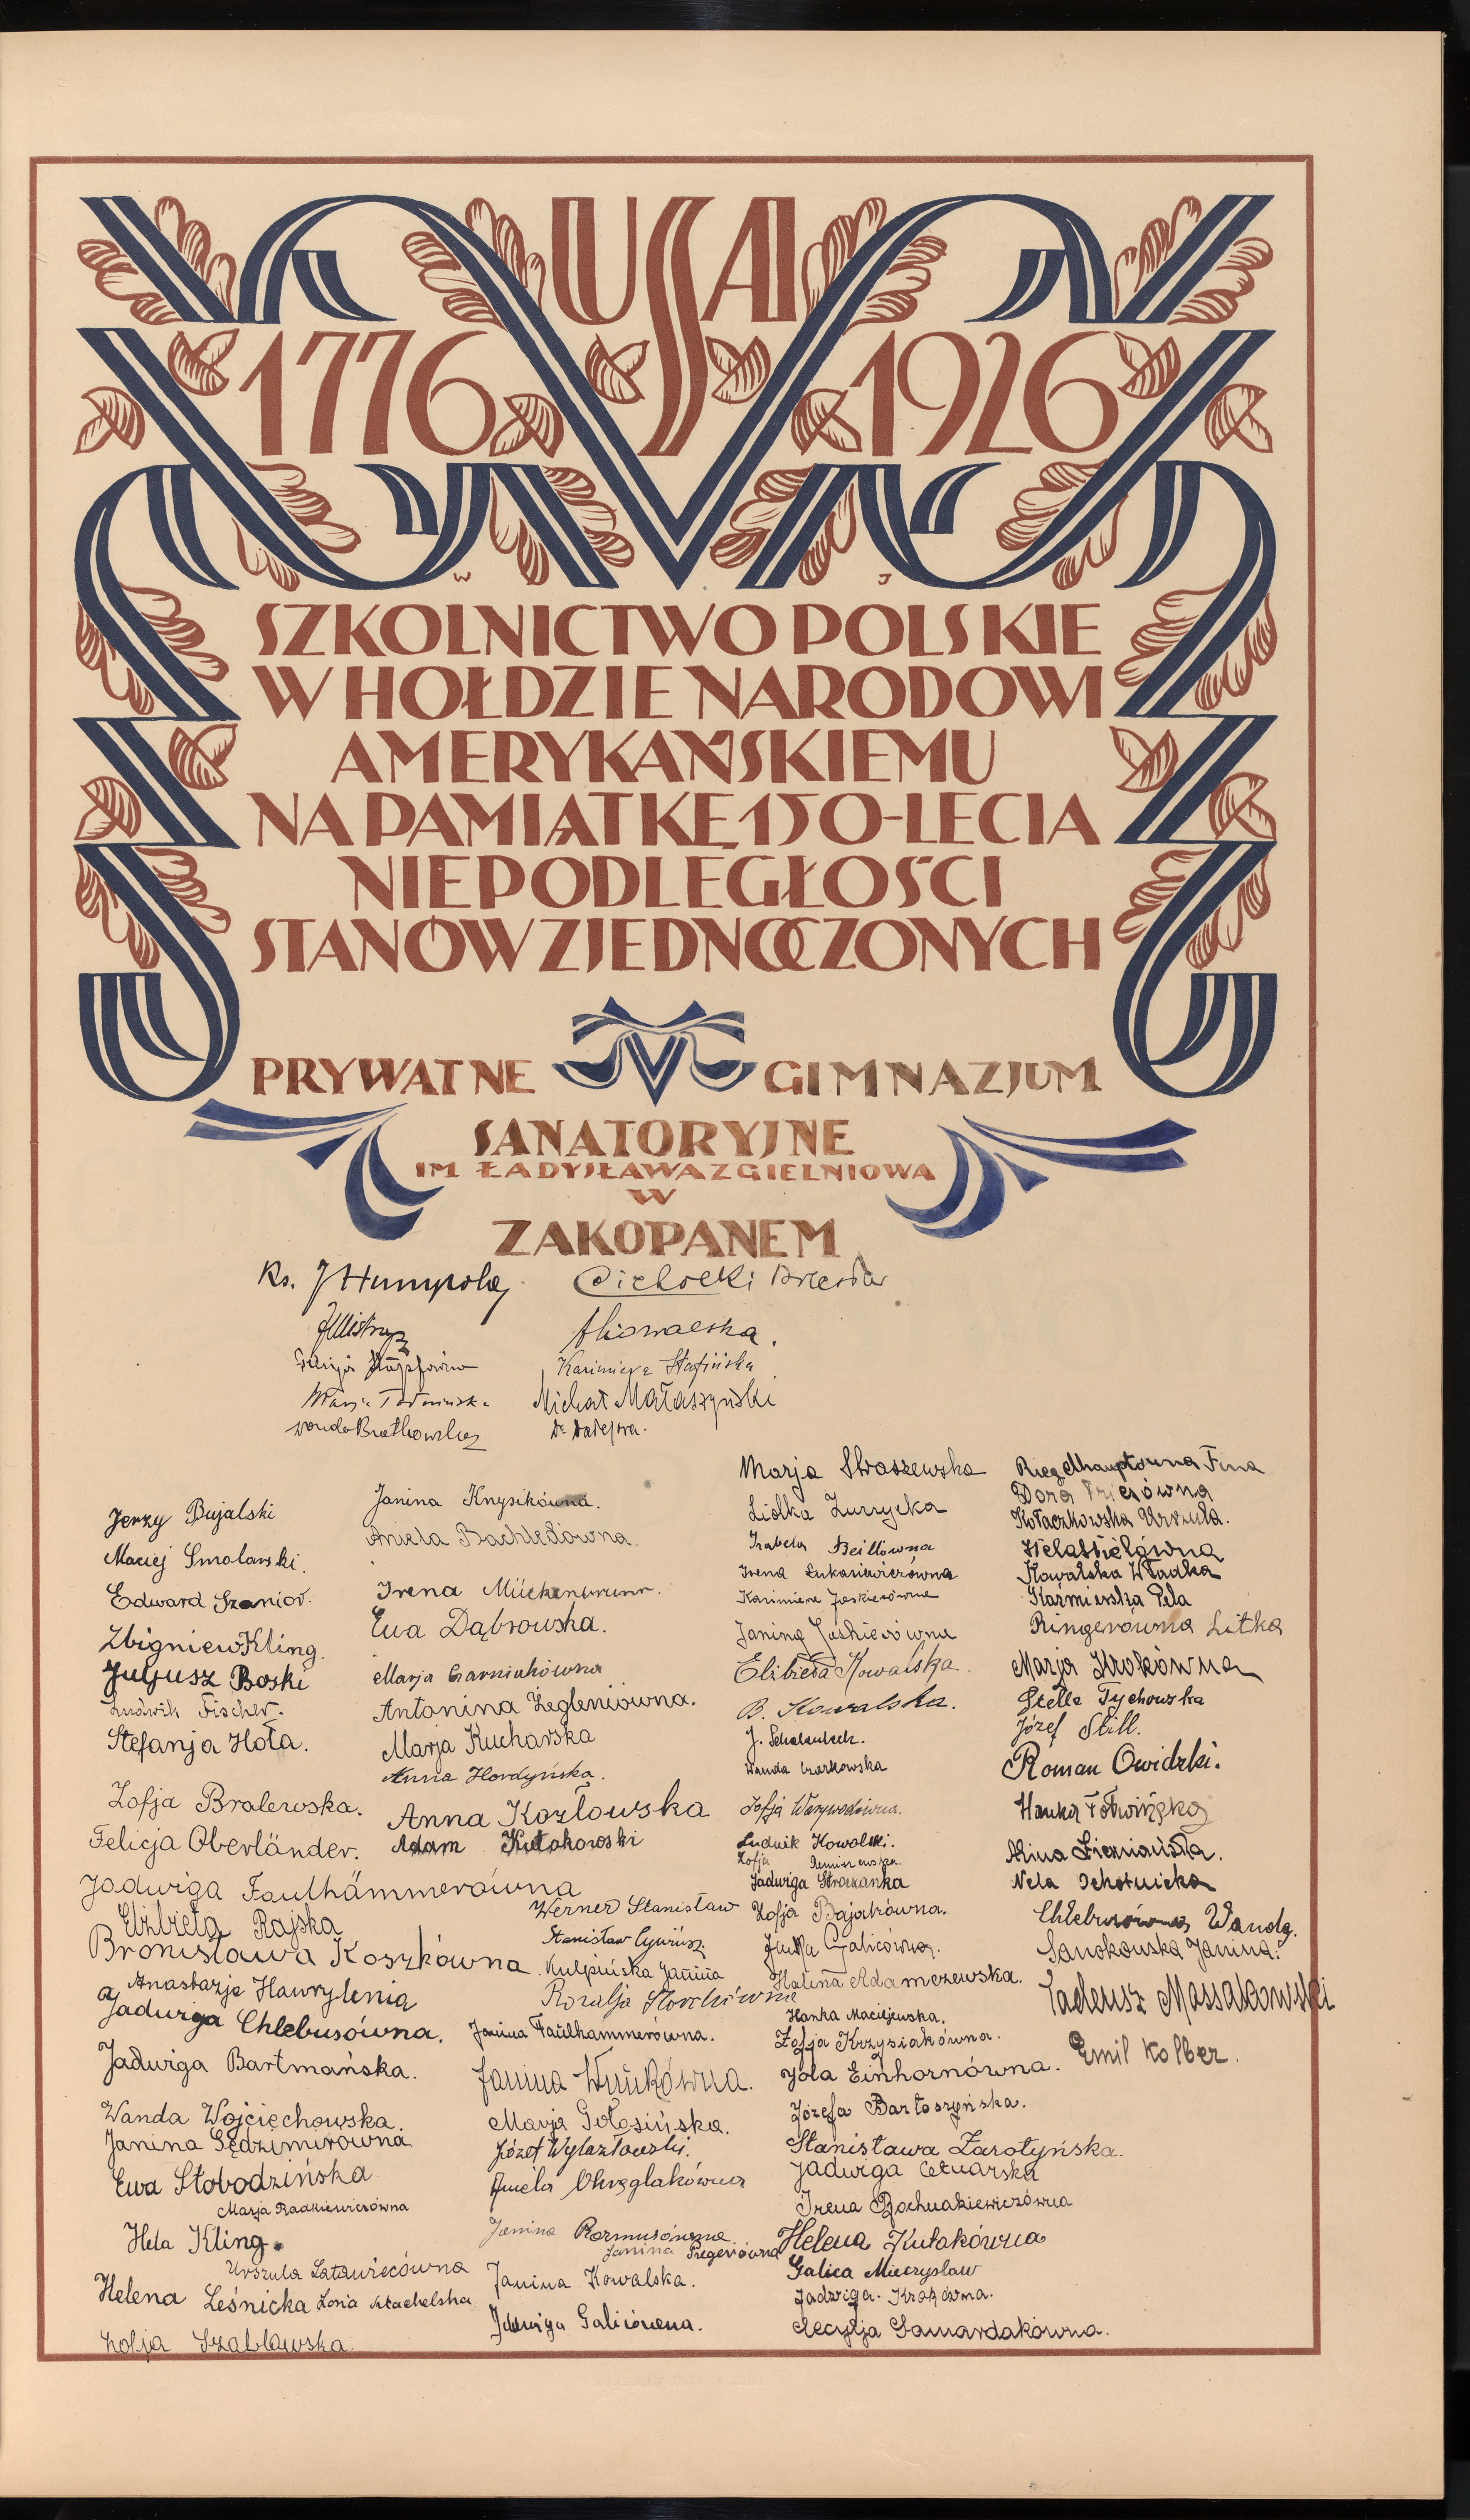 USA
1776 1926
W J
SZKOLNICTWO POLSKIE
W HOŁDZIE NARODOWI
AMERYKAŃSKIEMU
NA PAMIĄTKĘ 150-LECIA
NIEPODLEGŁOŚCI
STANÓW ZJEDNOCZONYCH
PRYWATNE GIMNAZJUM
SANATORYJNE
IM ŁADYSŁAWA Z GIELNIOWA
W
ZAKOPANEM
Ks. J Humpola
Cichocki
Kazimiera
Michał Małaszyński
Wanda
Jerzy Bujalski
Maciej Smolarski.
Edward Szanior.
Zbigniew Kling.
Juljusz Boski
Ludwik Fischer.
Stefanja Hoła.
Zofja Bralewska.
Felicja Oberländer.
Jadwiga Faulhämmerówna
Elżbieta Rajska
Bronisława Koszkówna
Anastazja Hawrylenia
Jadwiga Chlebusówna.
Jadwiga Bartmańska.
Wanda Wojciechowska.
Janina Sędzimirówna
Ewa Słobodzińska
Marja Radkiewiczówna
Hela Kling.
Urszula Latawiecówna
Helena Leśnicka Zosia Stachelska
Zofja Szabławska.
Janina Knysikówna.
Aniela Bachledówna.
Irena Mückenbrunn.
Ewa Dąbrowska.
Marja Garniakówna
Antonina Żegleniówna.
Marja Kucharska
Anna Hordyńska.
Anna Kozłowska
Adam Kułakowski
Werner Stanisław
Stanisław
Kulpińska Janina
Rozalja
Janina Faulhammerówna.
Janina Wnukówna.
Marja Gołosińska.
Józef Wylazłowski.
Aniela Okręglakówna
Janina Rozmusówna
Janina Pregerówna
Janina Kowalska.
Jadwiga Galicówna.
Marja Straszewska
Lidka Zurzycka
Izabela Beillówna
Irena Łukasiewiczówna
Kazimiera Jaskierówna
Janina Jaskierówna
Elżbieta Kowalska.
B. Kowalska.
J.
Wanda Czarkowska
Zofja Warzywodówna.
Ludwik Kowalski.
Zofja
Jadwiga Strączanka
Zofja Bajakówna.
Galicówna.
Halina Adamczewska.
Hanka Maciejewska.
Zofja Krzysiakówna.
Jola Einhornówna.
Józefa Bartoszyńska.
Stanisława Zarotyńska.
Jadwiga Cetnarska
Irena
Helena Kułakówna
Galica Mieczysław
Jadwiga Krokówna.
Cecylja Samardakówna.
Riegelhauptówna Fina
Dora
Kołaczkowska Urszula.
Kowalska Władka
Kaźmierska Pela
Ringerówna Litka
Marja Krokówna
Stella Tychowska
Józef Still.
Roman Owidzki.
Hanka
Alina Ziemiańska.
Nela
Chlebusówna Wanda.
Sanokowska Janina.
Tadeusz Massakowski
Emil Kolber.